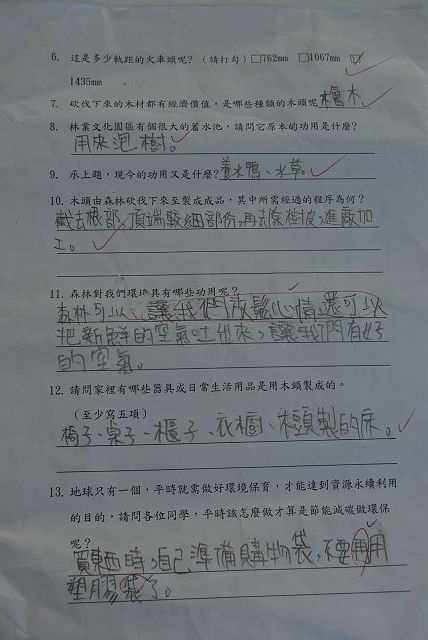 6. 這是多少軌距的火車頭呢？（請打勾）□762mm □1067mm ☑
1435mm
7. 砍伐下來的木材都有經濟價值，是哪些種類的木頭呢 檜木
8. 林業文化園區有個很大的蓄水池，請問它原本的功用是什麼？
用來泡樹。
9. 承上題，現今的功用又是什麼？養水鴨、水草。
10. 木頭由森林砍伐下來至製成成品，其中所需經過的程序為何？
截去根部，頂端較細部份，再去除樹皮，進廠加
工。
11. 森林對我們環境具有哪些功用呢？
森林可以讓我們放鬆心情，還可以
把新鮮的空氣吐出來，讓我們有好
的空氣。
12. 請問家裡有哪些器具或日常生活用品是用木頭製成的。
（至少寫五項）
椅子、桌子、櫃子、衣櫥、木頭製的床。
13. 地球只有一個，平時就需做好環境保育，才能達到資源永續利用
的目的，請問各位同學，平時該怎麼做才算是節能減碳做環保
呢？
買東西時，自己準備購物袋，不要再用
塑膠袋了。